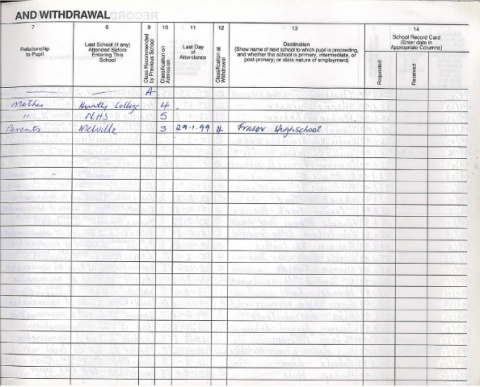 AND WITHDRAWAL
7 8 9 10 11 12 13 14
Relationship to Pupil
Last School (if any) Attended Before Entering This School
Class Recommended by Previous School
Classification on Admission
Last Day of Attendance
Classification at Withdrawal
Destination
(Show name of next school to which pupil is proceeding, and whether the school is primary, intermediate, or post-primary; or state nature of employment)
School Record Card (Enter date in Appropriate Columns)
Requested
Received
A
Mother Huntly College 4
" NHS 5
Parents Melville 3 29.1.99 4 Fraser Highschool